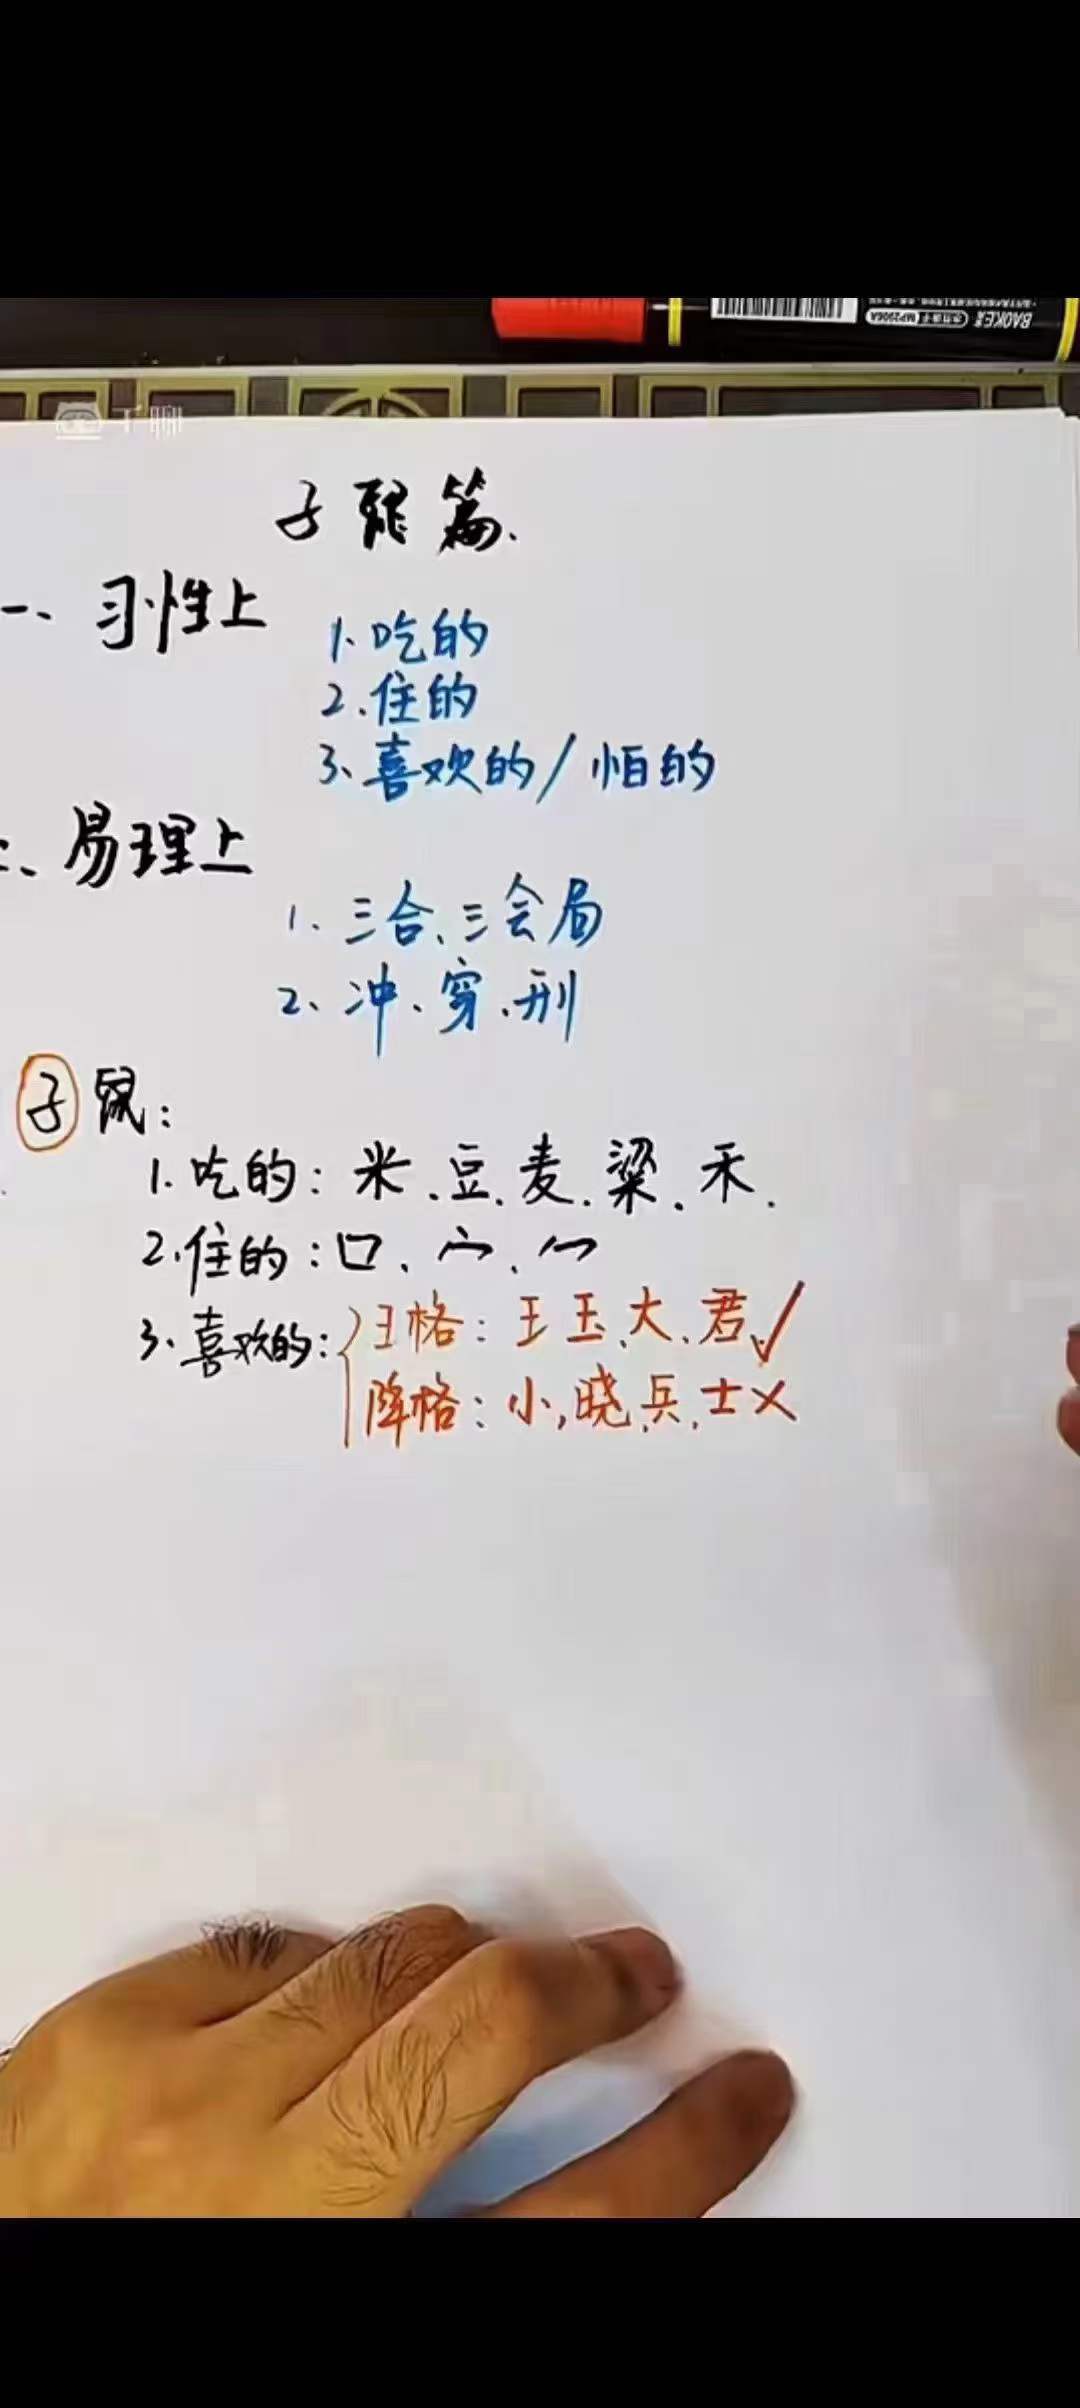 BAOKE
MP2906A
千聊
子鼠篇.
一、习性上
1.吃的
2.住的
3、喜欢的/怕的
二、易理上
1.三合、三会局
2、冲、穿、刑
子鼠:
1.吃的:米、豆、麦、粱、禾.
2.住的:口、宀、冖
3.喜欢的:
王格:王、玉、大、君✓
降格:小,晓、兵、士×